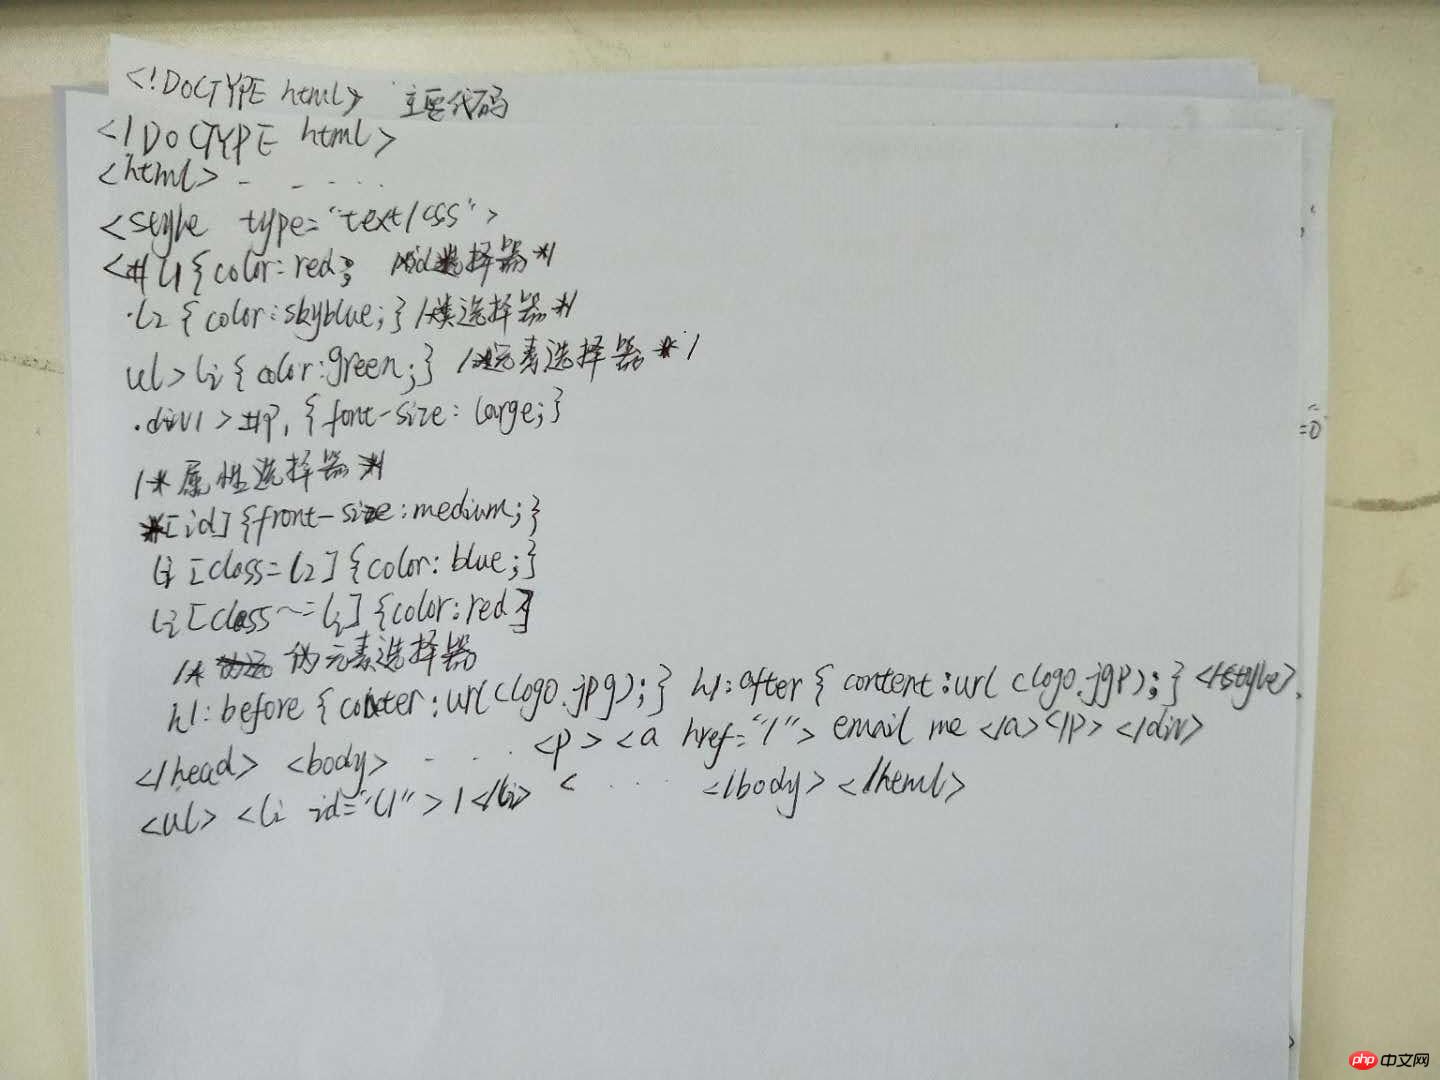 <!DOCTYPE html> 主要代码
<!DOCTYPE html>
<html> - - - . .
<style type="text/css">
<#l1{color:red; id选择器*/
.l2{color:skyblue;} /*类选择器*/
ul>li{color:green;} /*元素选择器*/
.div1>#p1{font-size: large;}
/*属性选择器*/
*[id]{front-size:medium;}
li[class=l2]{color: blue;}
li[class~=li]{color:red}
/* 伪元素选择器
h1:before{conter:url(logo.jpg);} h1:after{content:url(logo.jgp);}</style>.
</head> <body> - - . . <p><a href="1"> email me </a></p> </div>
<ul> <li id="l1">1</li> < . . . </body> </heml>
=0
php 中文网